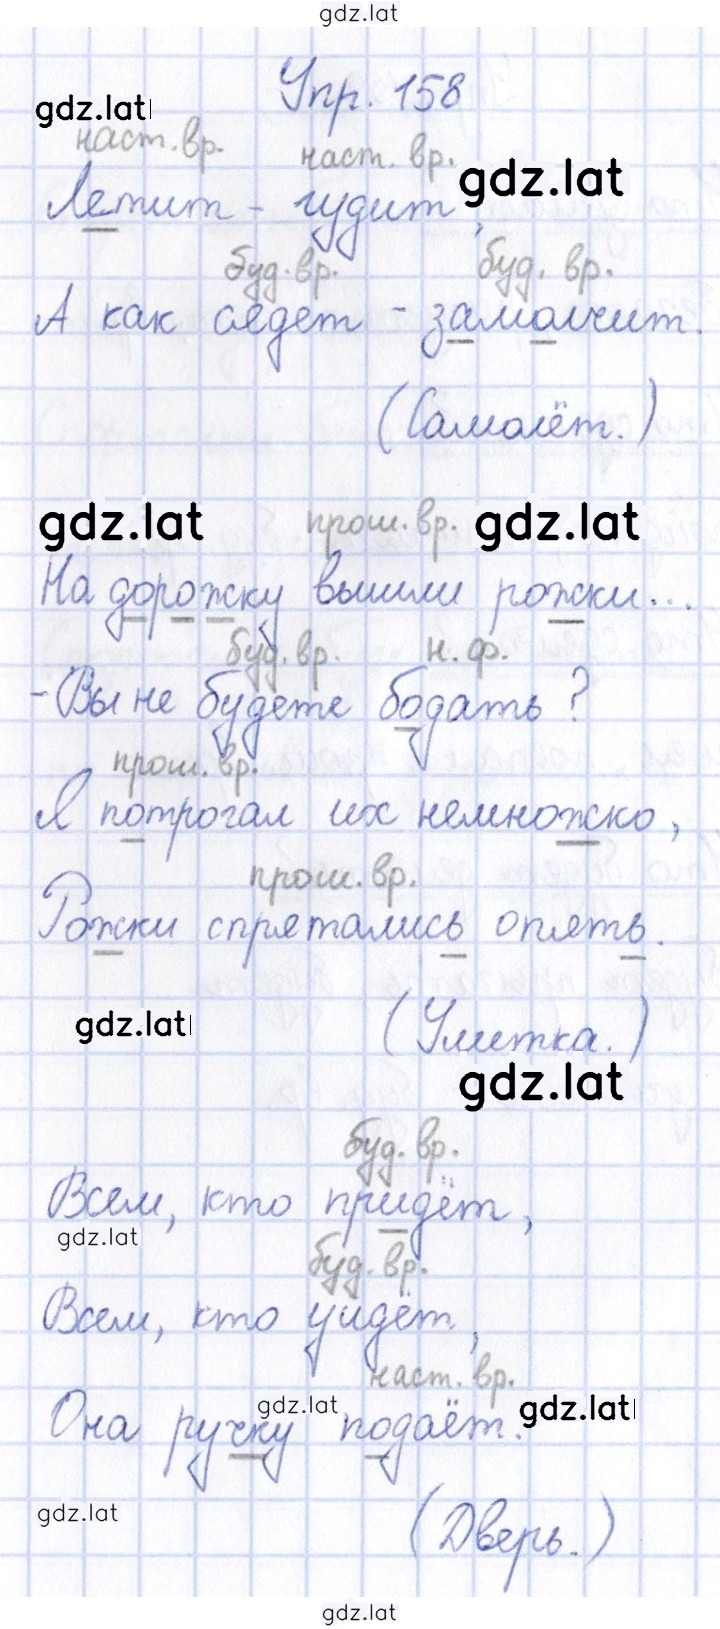 gdz.lat
Упр. 158
gdz.lat
наст. вр. наст. вр.
gdz.lat
Летит - гудит,
буд. вр. буд. вр.
А как сядет - замолчит.
(Самолёт.)
gdz.lat прош. вр. gdz.lat
На дорожку вышли рожки...
буд. вр. н. ф.
- Вы не будете бодать?
прош. вр.
Я потрогал их немножко,
прош. вр.
Рожки спрятались опять.
gdz.lat (Улитка.)
gdz.lat
буд. вр.
Всем, кто придёт,
gdz.lat
буд. вр.
Всем, кто уйдёт,
наст. вр.
gdz.lat gdz.lat
Она ручку подаёт.
gdz.lat
(Дверь.)
gdz.lat